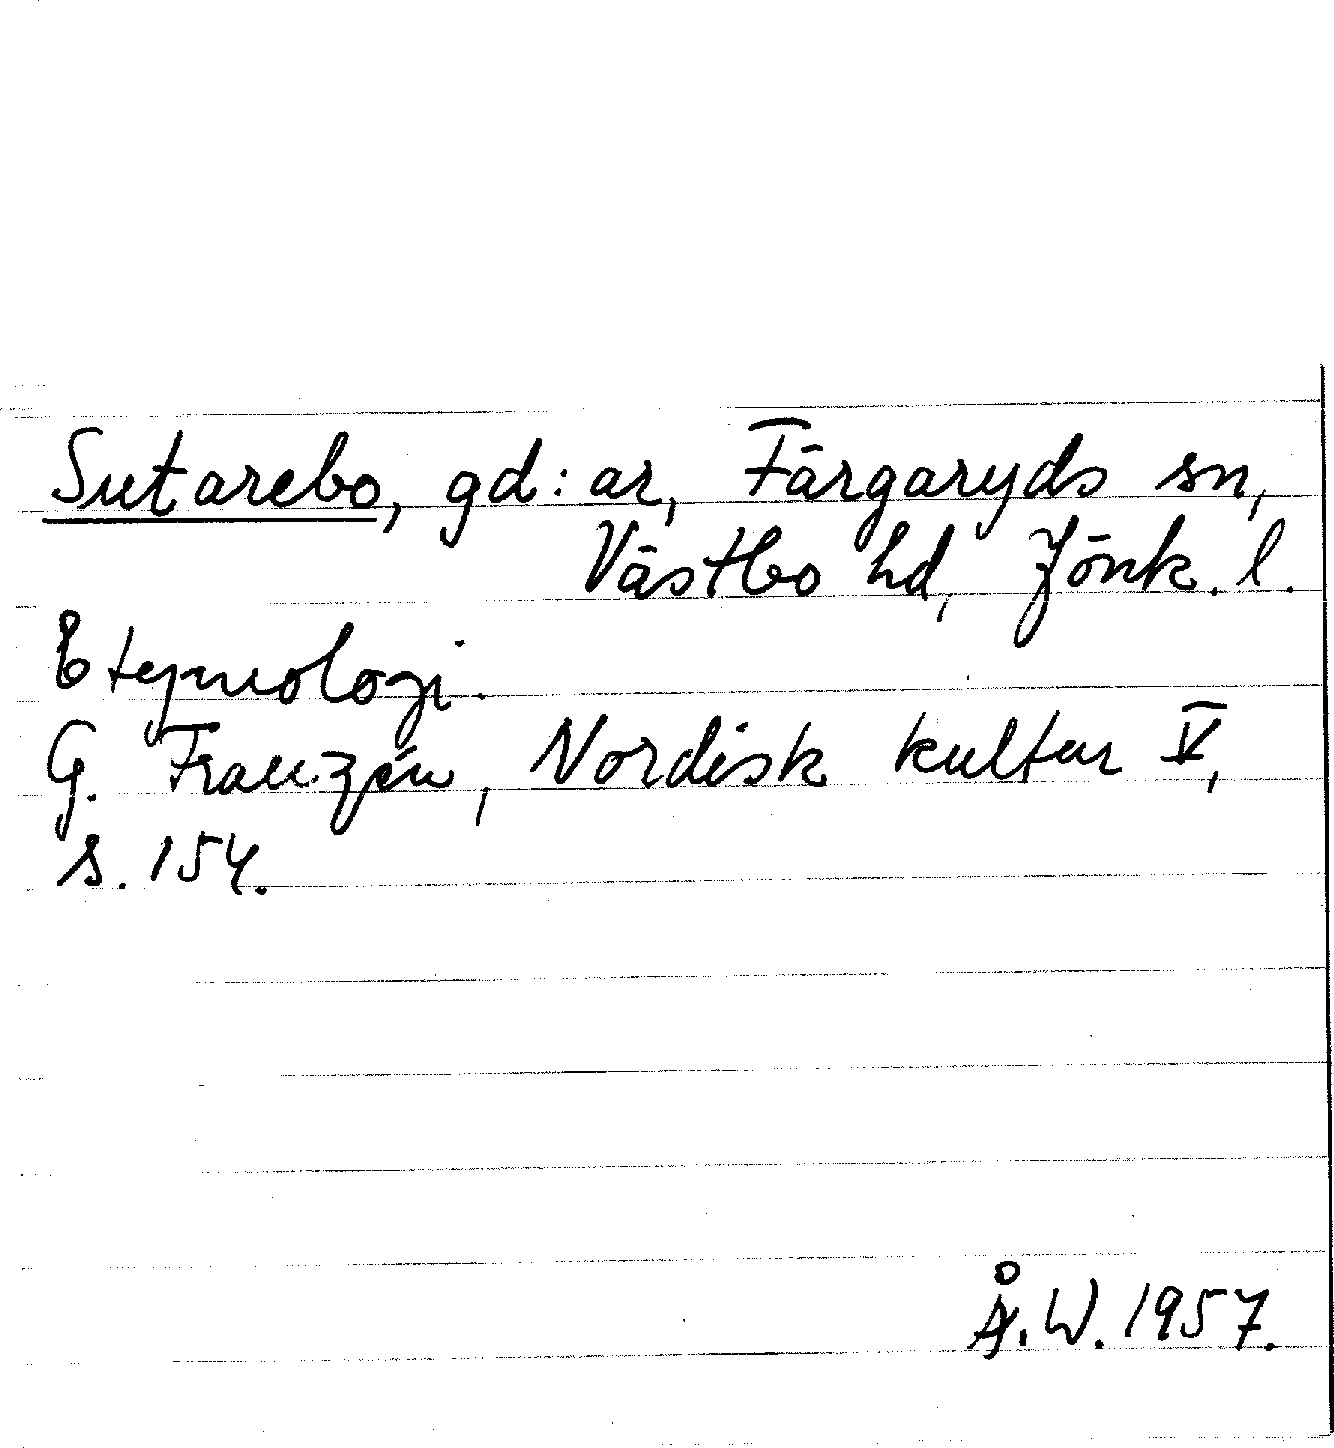 Sutarebo, gd:ar, Färgaryds sn,
Västbo hd, Jönk. l.
Etymologi.
G. Franzén, Nordisk kultur V,
s. 154.
Å.W. 1957.